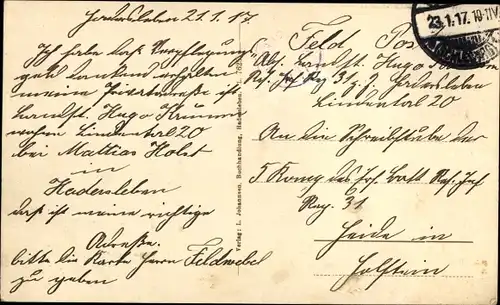 Hadersleben 21.1.17
Ich habe das Verpflegungs
geld dankend erhalten
meine Adresse ist
Landst. Hugo Krumm
wohne Lindental 20
bei Mattias Holst
in
Hadersleben
daß ist meine richtige
Adreße.
bitte die Karte Herrn Feldwebel
zu geben
Verlag: L. Johannsen, Buchhandlung, Hadersleben.
23.1.17. 10-11V
Feld Post
Abs. Landst. Hugo
Res. Inf Reg 31. Hadersleben
Lindental 20
An die Schreibstube der
5 Komp des Ers. Batt Res. Inf
Reg. 31
Heide in
Holstein